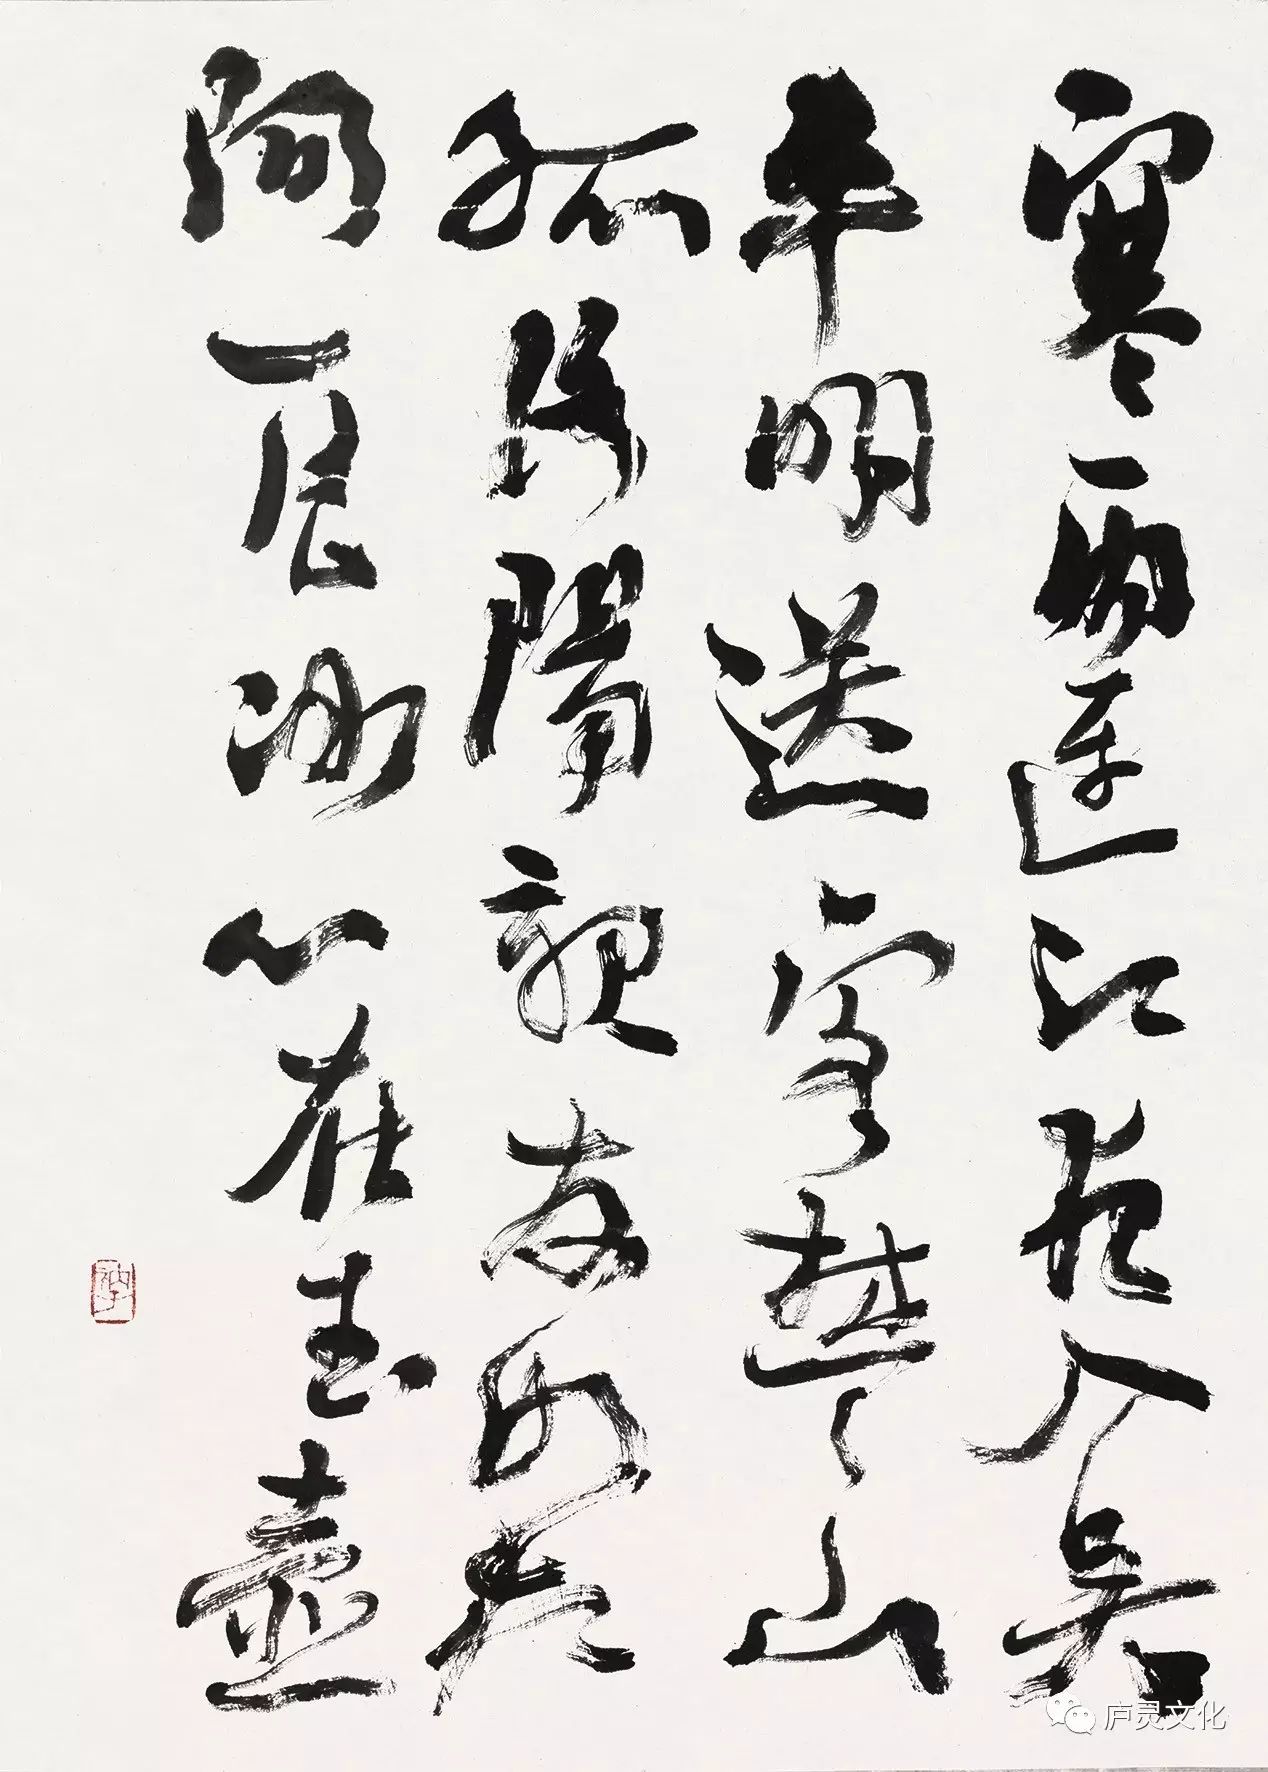 寒雨連江夜入吳
平明送客楚山
孤洛陽親友如相
問一片冰心在玉壺
庐灵文化